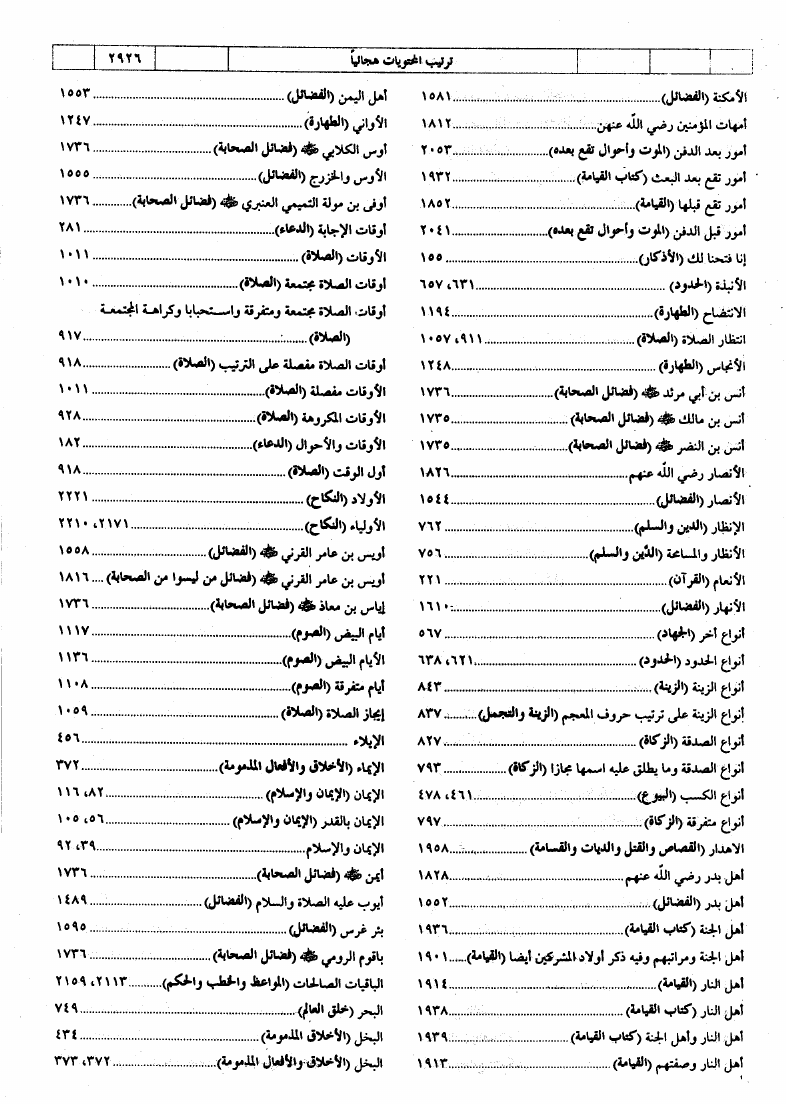 ترتيب المحتويات هجائياً
٢٩٢٦
الأمكنة (الفضائل) ١٥٨١
أمهات المؤمنين رضي الله عنهن ١٨١٢
أمور بعد الدفن (الموت وأحوال تقع بعده) ٢٠٥٣
أمور تقع بعد البعث (كتاب القيامة) ١٩٣٢
أمور تقع قبلها (القيامة) ١٨٥٢
أمور قبل الدفن (الموت وأحوال تقع بعده) ٢٠٤١
إنا فتحنا لك (الأذكار) ١٥٥
الأنبذة (الحدود) ٦٣١، ٦٥٧
الانتضاح (الطهارة) ١١٩٤
انتظار الصلاة (الصلاة) ٩١١، ١٠٥٧
الأنجاس (الطهارة) ١٢٤٨
أنس بن أبي مرثد ﷺ (فضائل الصحابة) ١٧٣٦
أنس بن مالك ﷺ (فضائل الصحابة) ١٧٣٥
أنس بن النضر ﷺ (فضائل الصحابة) ١٧٣٥
الأنصار رضي الله عنهم ١٨٢٦
الأنصار (الفضائل) ١٥٤٤
الإنظار (الدين والسلم) ٧٦٢
الأنظار والمسامحة (الدَّين والسلم) ٧٥٦
الأنعام (القرآن) ٢٢١
الأنهار (الفضائل) ١٦١٠
أنواع أخر (الجهاد) ٥٦٧
أنواع الحدود (الحدود) ٦٢١، ٦٣٨
أنواع الزينة (الزينة) ٨٤٣
أنواع الزينة على ترتيب حروف المعجم (الزينة والتجمل) ٨٣٧
أنواع الصدقة (الزكاة) ٨٢٧
أنواع الصدقة وما يطلق عليه اسمها مجازا (الزكاة) ٧٩٣
أنواع الكسب (البيوع) ٤٦١، ٤٧٨
أنواع متفرقة (الزكاة) ٧٩٧
الاهدار (القصاص والقتل والديات والقسامة) ١٩٥٨
أهل بدر رضي الله عنهم ١٨٢٨
أهل بدر (الفضائل) ١٥٥٢
أهل الجنة (كتاب القيامة) ١٩٣٦
أهل الجنة ومراتبهم وفيه ذكر أولاد المشركين أيضا (القيامة) ١٩٠١
أهل النار (القيامة) ١٩١٤
أهل النار (كتاب القيامة) ١٩٣٨
أهل النار وأهل الجنة (كتاب القيامة) ١٩٣٩
أهل النار وصفتهم (القيامة) ١٩١٣
أهل اليمن (الفضائل) ١٥٥٣
الأواني (الطهارة) ١٢٤٧
أوس الكلابي ﷺ (فضائل الصحابة) ١٧٣٦
الأوس والخزرج (الفضائل) ١٥٥٥
أوفى بن مولة التميمي العنبري ﷺ (فضائل الصحابة) ١٧٣٦
أوقات الإجابة (الدعاء) ٢٨١
الأوقات (الصلاة) ١٠١١
أوقات الصلاة مجتمعة (الصلاة) ١٠١٠
أوقات الصلاة مجتمعة ومتفرقة واستحبابا وكراهة المجتمعة
(الصلاة) ٩١٧
أوقات الصلاة مفصلة على الترتيب (الصلاة) ٩١٨
الأوقات مفصلة (الصلاة) ١٠١١
الأوقات المكروهة (الصلاة) ٩٢٨
الأوقات والأحوال (الدعاء) ١٨٢
أول الوقت (الصلاة) ٩١٨
الأولاد (النكاح) ٢٢٢١
الأولياء (النكاح) ٢١٧١، ٢٢١٠
أويس بن عامر القرني ﷺ (الفضائل) ١٥٥٨
أويس بن عامر القرني ﷺ (فضائل من ليسوا من الصحابة) ١٨١٦
إياس بن معاذ ﷺ (فضائل الصحابة) ١٧٣٦
أيام البيض (الصوم) ١١١٧
الأيام البيض (الصوم) ١١٣٦
أيام متفرقة (الصوم) ١١٠٨
إيجاز الصلاة (الصلاة) ١٠٥٩
الإيلاء ٤٥٦
الإيماء (الأخلاق والأفعال المذمومة) ٣٧٢
الإيمان (الإيمان والإسلام) ٨٢، ١١٦
الإيمان بالقدر (الإيمان والإسلام) ٥٦، ١٠٥
الإيمان والإسلام ٣٩، ٩٢
أيمن ﷺ (فضائل الصحابة) ١٧٣٦
أيوب عليه الصلاة والسلام (الفضائل) ١٤٨٩
بئر غرس (الفضائل) ١٥٩٥
باقوم الرومي ﷺ (فضائل الصحابة) ١٧٣٦
الباقيات الصالحات (المواعظ والخطب والحكم) ٢١١٣، ٢١٥٩
البحر (خلق العالم) ٧٤٩
البخل (الأخلاق المذمومة) ٤٣٤
البخل (الأخلاق والأفعال المذمومة) ٣٧٢، ٣٧٣